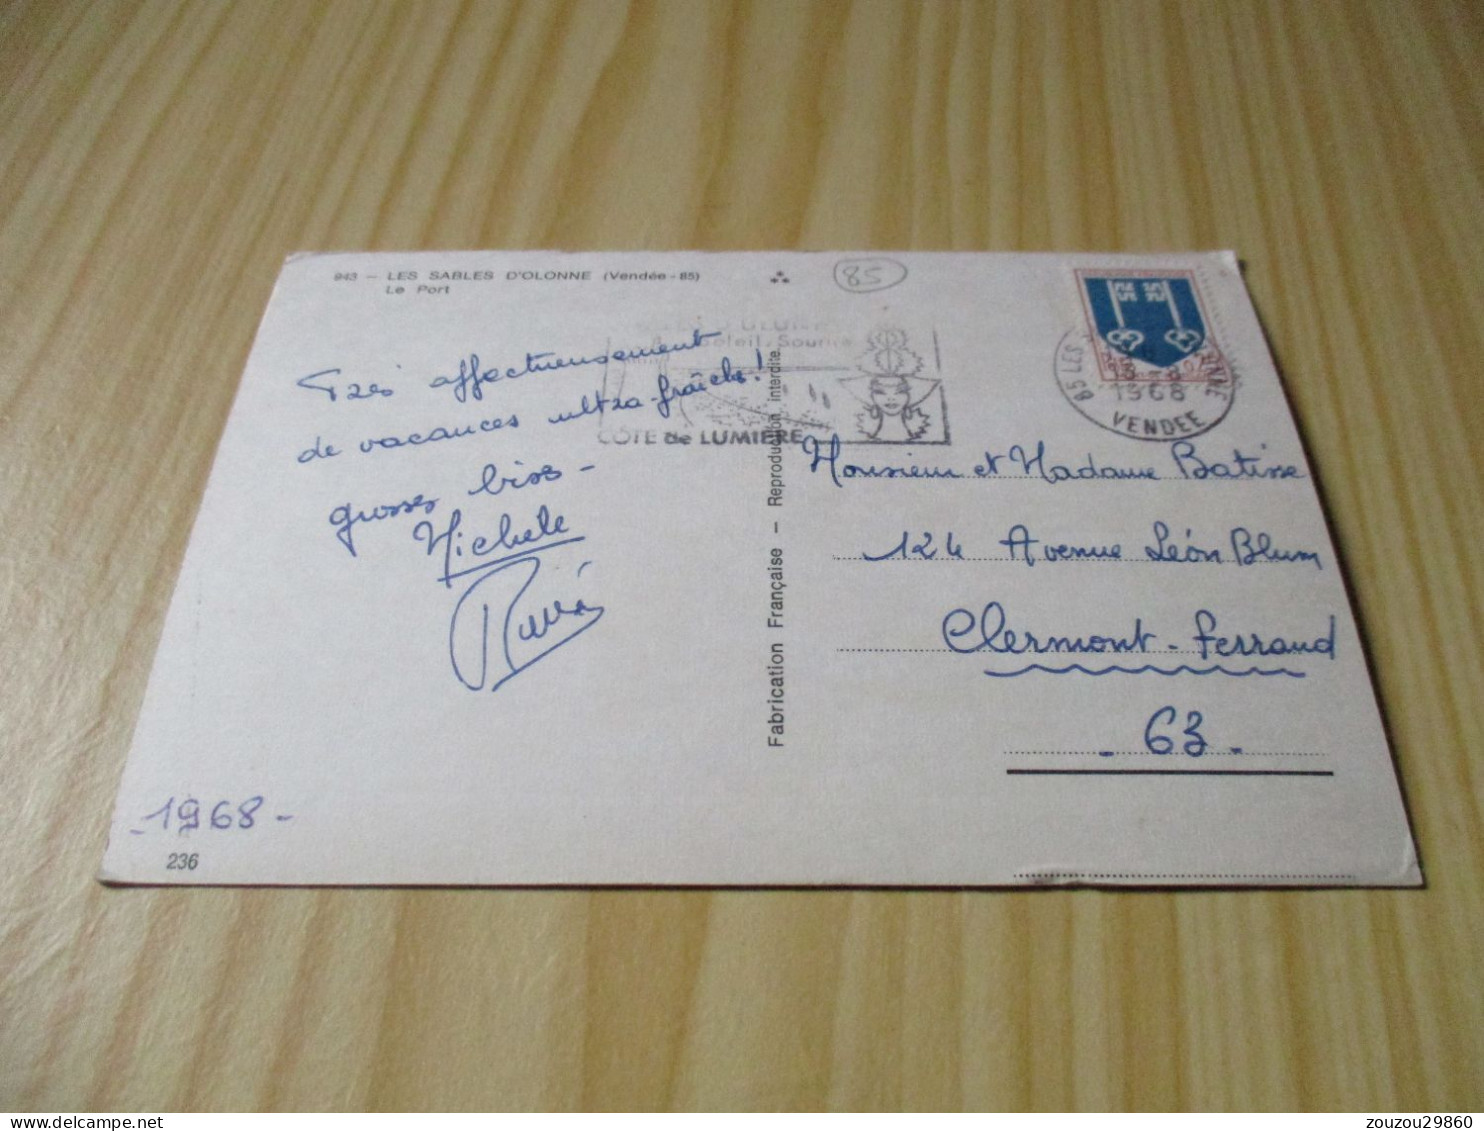 943 — LES SABLES D'OLONNE (Vendée - 85)
Le Port
85
Soleil. Sourire
CÔTE de LUMIÈRE
85 LES
1968
VENDEE
Très affectueusement
de vacances ultra-fraîches!
grosses bises -
Michele
Fabrication Française — Reproduction interdite.
Monsieur et Madame Batisse
124 Avenue Léon Blum
Clermont-Ferrand
- 63 -
- 1968 -
236
zouzou29860